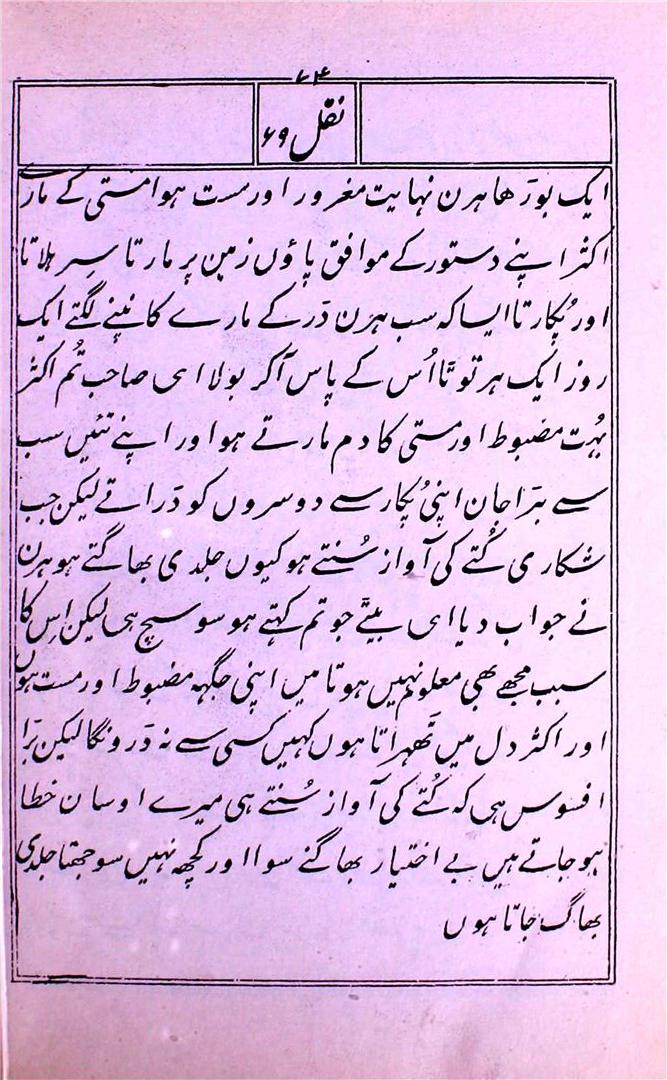 ۶۴
نقل ۶۹
ایک بورھا ہرن نہایت مغرور اور مست ہوا مستی کے مارے
اکثر اپنے دستور کے موافق پاؤں زمین پر مارتا سر ہلاتا
اور پُکارتا ایسا کہ سب ہرن دَر کے مارے کانپنے لگتے ایک
روز ایک ہرنوتا اُس کے پاس آکر بولا ای صاحب تُم اکثر
بہُت مضبوط اور مستی کا دم مارتے ہو اور اپنے تئیں سب
سے بَرا جان اپنی پُکار سے دوسروں کو دَراتے لیکن جب
شکاری کُتے کی آواز سُنتے ہو کیوں جلدی بھاگتے ہو ہرن
نے جواب دیا ای بیٹے جو تم کہتے ہو سو سچ ہی لیکن اِس کا
سبب مجھے بھی معلوم نہیں ہوتا میں اپنی جگہہ مضبوط اور مست ہوں
اور اکثر دل میں تَھہراتا ہوں کہیں کسی سے نہ دَرونگا لیکن بَرا
افسوس ہی کہ کُتے کی آواز سُنتے ہی میرے اوسان خطا
ہو جاتے ہیں بے اختیار بھاگنے سوا اور کچھ نہیں سوجھتا جلدی
بھاگ جاتا ہوں